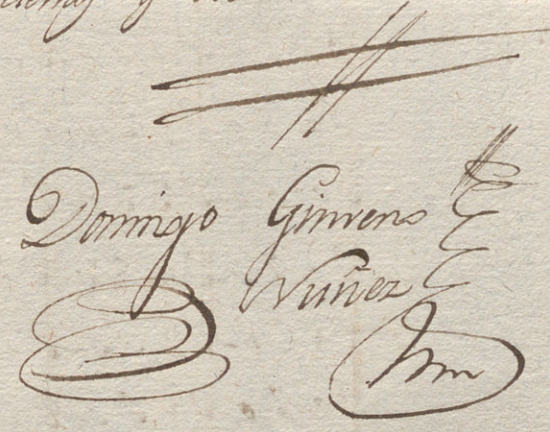 Domingo Gimeno
Nuñez